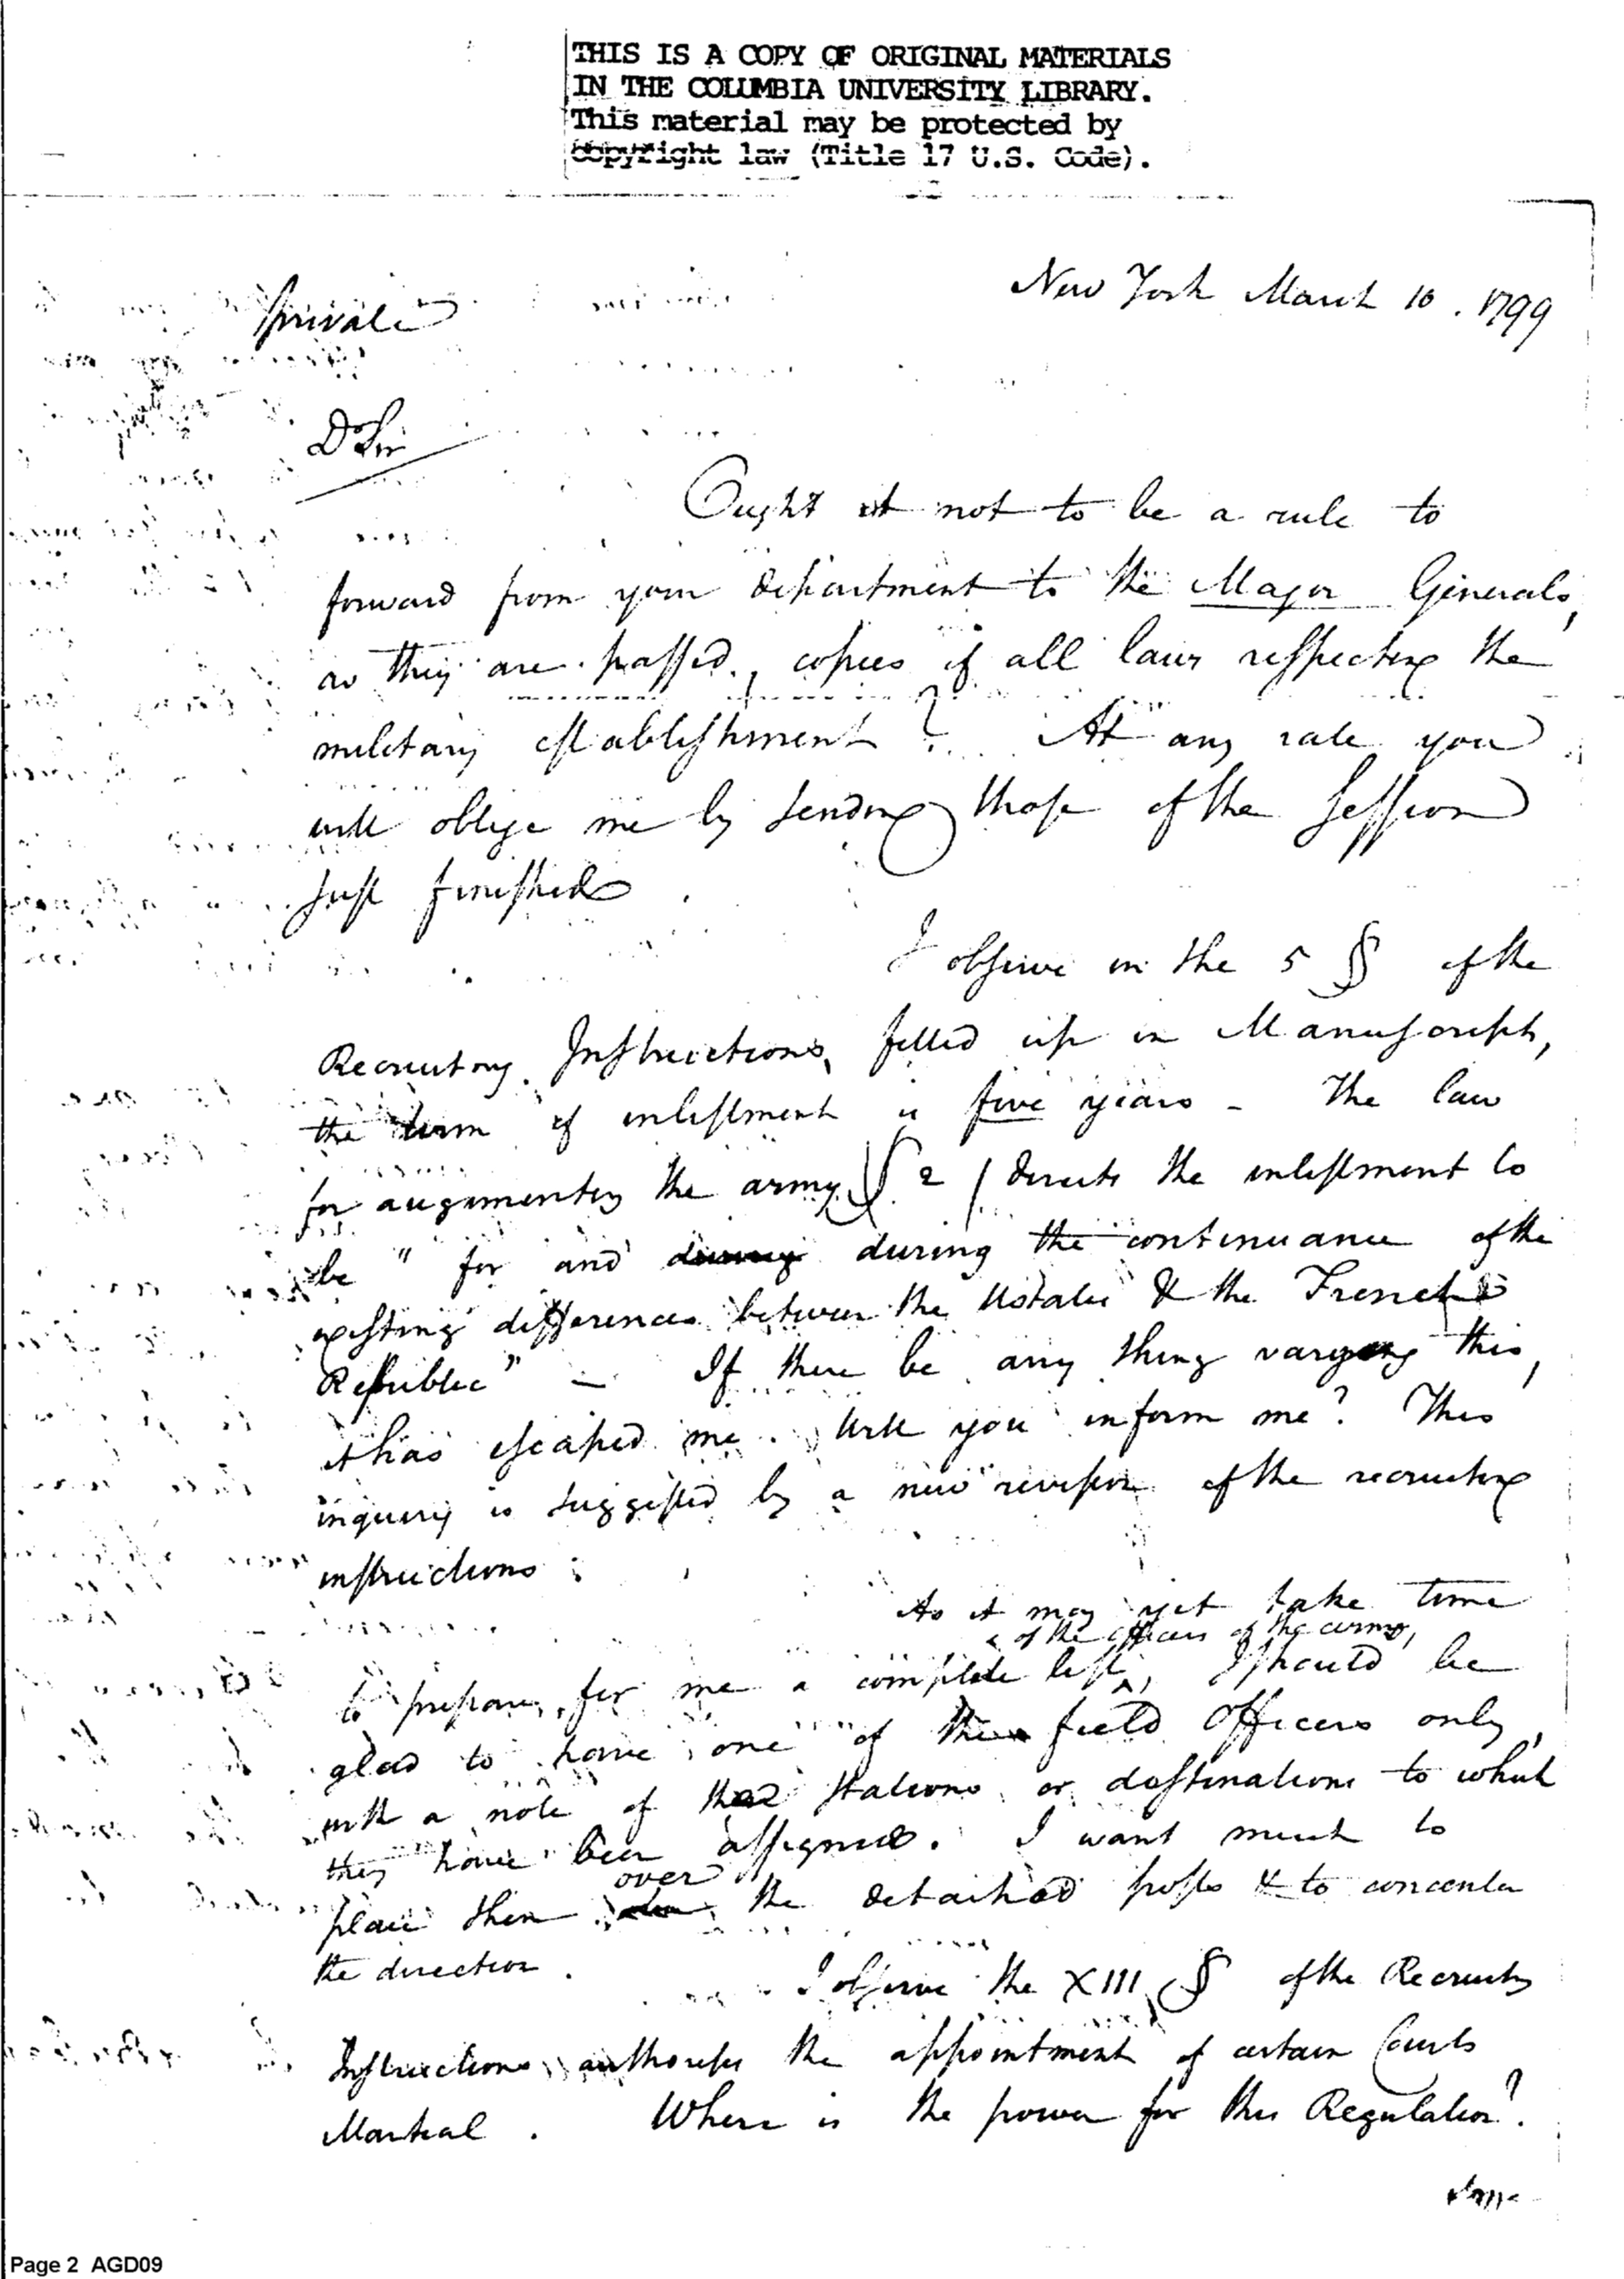 THIS IS A COPY OF ORIGINAL MATERIALS
IN THE COLUMBIA UNIVERSITY LIBRARY.
This material may be protected by
copyright law (Title 17 U.S. Code).
New York March 10. 1799
private
Dr Sir
Ought it not to be a rule to
forward from your department to the Major Generals,
as they are passed, copies of all laws respecting the
military establishment? At any rate you
will oblige me by sending those of the session
just finished.
I observe in the 5 § of the
Recruiting Instructions, filled up in Manuscript,
the term of inlistment is five years - The law
for augmenting the army § 2 / directs the inlistment to
be " for and during the continuance of the
existing differences between the UStates & the French
Republic" — If there be any thing varying this,
it has escaped me. Will you inform me? This
inquiry is suggested by a new revision of the recruiting
instructions.
As it may yet take time
of the officers of the army,
to prepare for me a complete list, I should be
glad to have one of the field Officers only,
with a note of the stations or destinations to which
they have been assigned. I want much to
over
place them the detached posts & to concenter
the direction.
I observe the XIII § of the Recruiting
Instructions authorises the appointment of certain Courts
Martial. Where is the power for this Regulation?
Page 2 AGD09